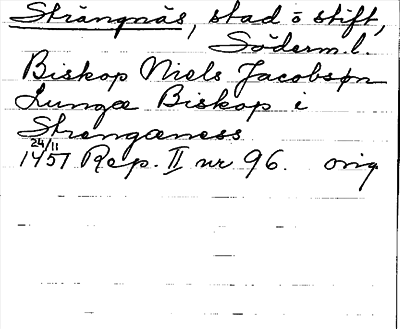 Strängnäs, stad o stift,
Söderm.l.
Biskop Niels Jacobsøn
Lungæ Biskop i
Strengæness
24/11
1457 Rep. II nr 96. orig